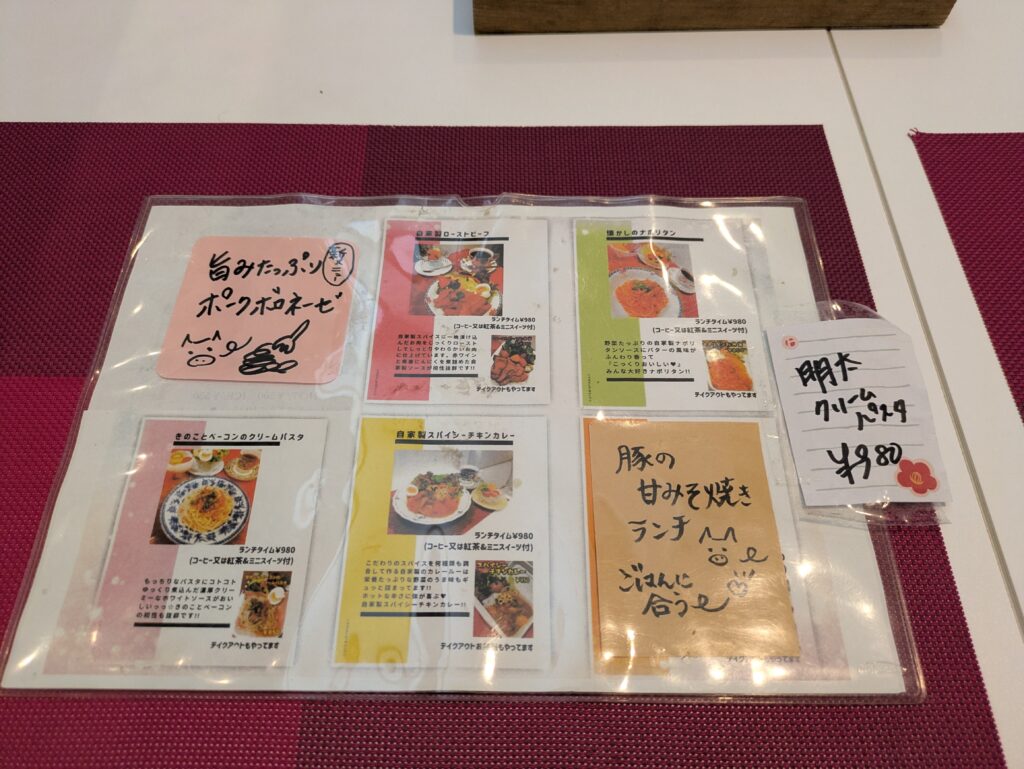 旨みたっぷり
新メニュー
ポークボロネーゼ
自家製ローストビーフ
ランチタイム¥980
(コーヒー又は紅茶&ミニスイーツ付)
自家製スパイスに一晩漬け込
んだお肉をじっくりロースト
してしっとりやわらかいお肉
に仕上げています。赤ワイン
製ソースが相性抜群です!!
テイクアウトもやってます
懐かしのナポリタン
ランチタイム¥980
(コーヒー又は紅茶&ミニスイーツ付)
野菜たっぷりの自家製ナポリ
タンソースにバターの風味が
ふんわり香って
「こっくりおいしい♥」
みんな大好きナポリタン!!
テイクアウトもやってます
明太
クリーム
パスタ
¥980
きのことベーコンのクリームパスタ
ランチタイム¥980
(コーヒー又は紅茶&ミニスイーツ付)
もっちりなパスタにコトコト
ゆっくり煮込んだ濃厚クリー
ミーなホワイトソースがおい
しいっっ☆きのことベーコン
の相性も抜群です!!
テイクアウトもやってます
自家製スパイシーチキンカレー
ランチタイム¥980
(コーヒー又は紅茶&ミニスイーツ付)
こだわりのスパイスを何種類も調
合して作る自家製のカレールーは
栄養たっぷりな野菜のうま味もギ
ュッと詰まってます!!
ホットな辛さに体が喜ぶ♥
自家製スパイシーチキンカレー!!
テイクアウト
もやってます
豚の
甘みそ焼き
ランチ
ごはんに
合う
テイクアウトもやってます